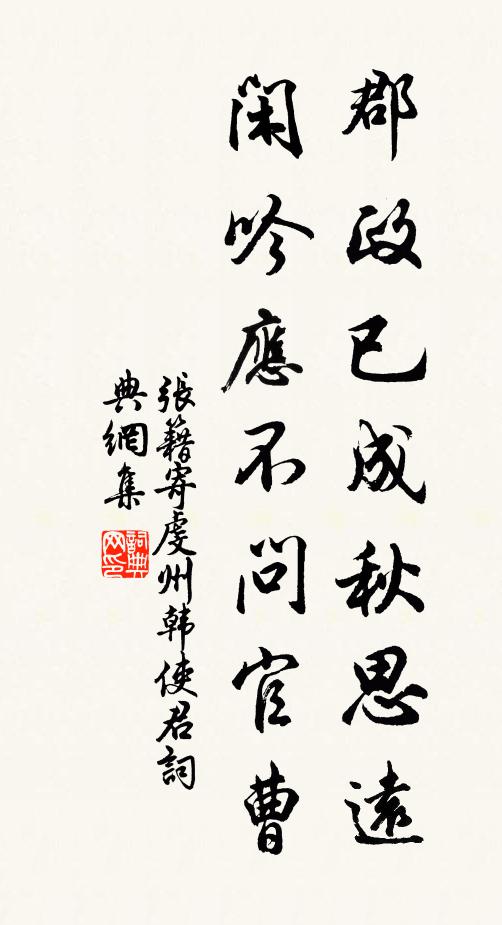 郡政已成秋思遠
閑吟應不問官曹
張籍寄虔州韩使君詞
典網集
詞典网印